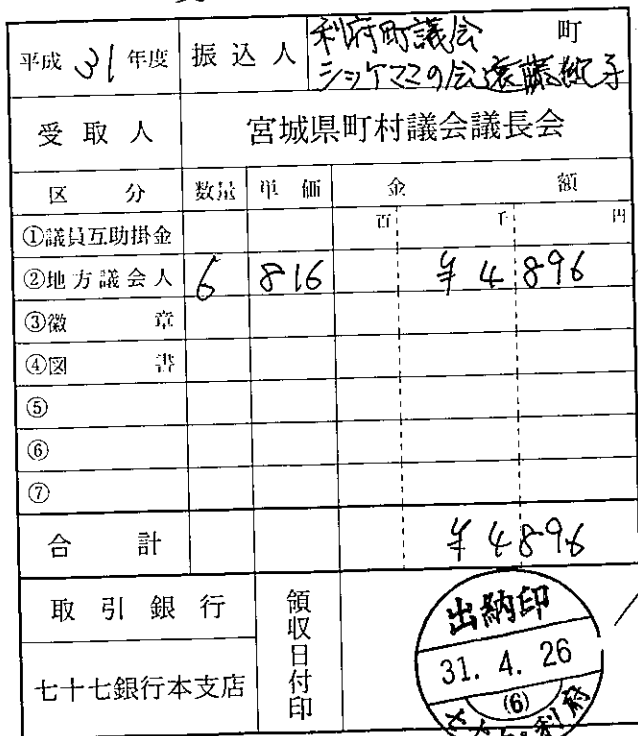 平成 31 年度 振込人 利府町議会 町
シッケママの会 遠藤紀子
受取人 宮城県町村議会議長会
区分 数量 単価 金額
百 千 円
①議員互助掛金
②地方議会人 6 816 ¥4896
③徽章
④図書
⑤
⑥
⑦
合計 ¥4896
取引銀行 領収日付印
七十七銀行本支店
出納印
31. 4. 26
(6)
利府